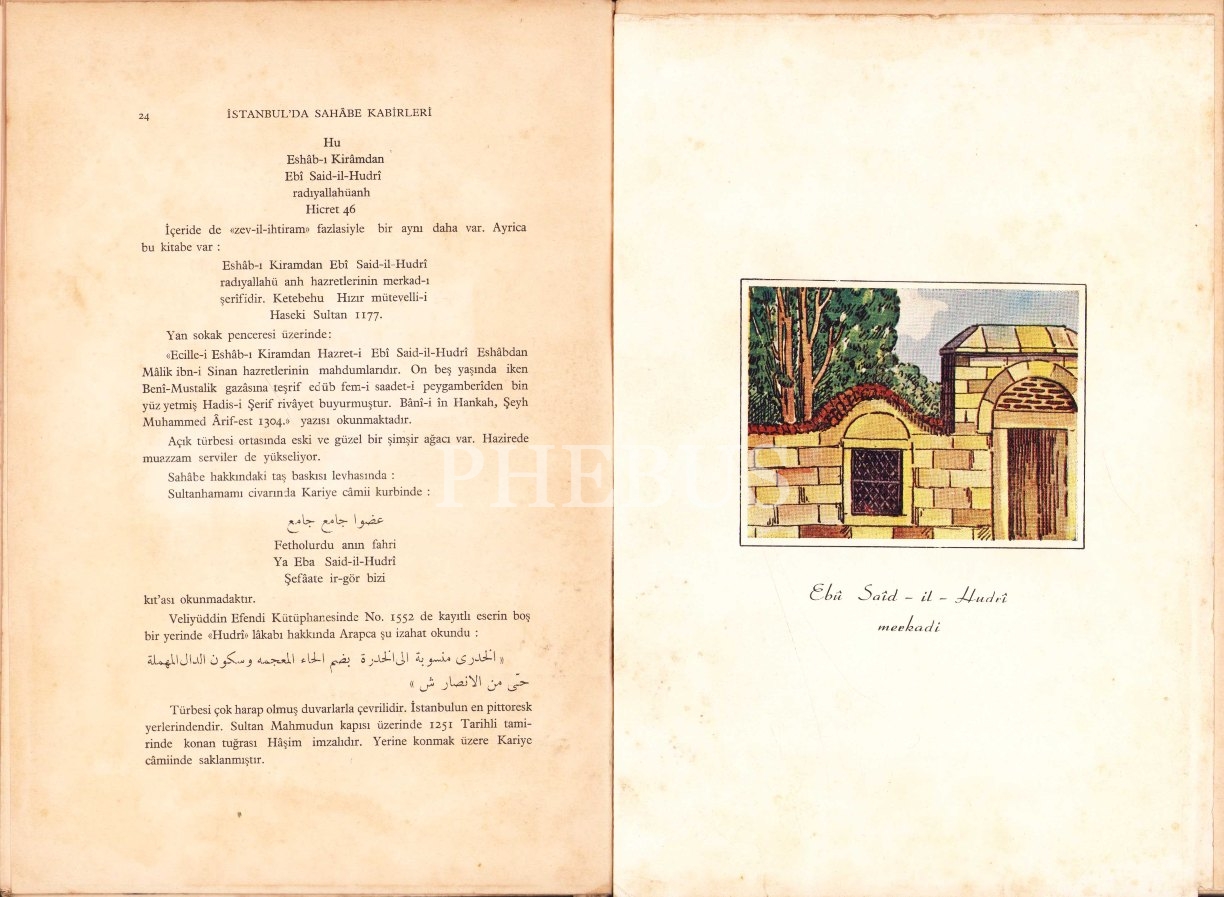 24
İSTANBUL'DA SAHÂBE KABİRLERİ
Hu
Eshâb-ı Kirâmdan
Ebî Said-il-Hudrî
radıyallahüanh
Hicret 46
İçeride de «zev-il-ihtiram» fazlasiyle bir aynı daha var. Ayrica
bu kitabe var :
Eshâb-ı Kiramdan Ebî Said-il-Hudrî
radıyallahü anh hazretlerinin merkad-ı
şerifidir. Ketebehu Hızır mütevelli-i
Haseki Sultan 1177.
Yan sokak penceresi üzerinde:
«Ecille-i Eshâb-ı Kiramdan Hazret-i Ebî Said-il-Hudrî Eshâbdan
Mâlik ibn-i Sinan hazretlerinin mahdumlarıdır. On beş yaşında iken
Benî-Mustalik gazâsına teşrif edüb fem-i saadet-i peygamberîden bin
yüz yetmiş Hadis-i Şerif rivâyet buyurmuştur. Bânî-i în Hankah, Şeyh
Muhammed Ârif-est 1304.» yazısı okunmaktadır.
Açık türbesi ortasında eski ve güzel bir şimşir ağacı var. Hazirede
muazzam serviler de yükseliyor.
Sahâbe hakkındaki taş baskısı levhasında :
Sultanhamamı civarında Kariye câmii kurbinde :
عضوا جامع جامع
Fetholurdu anın fahri
Ya Eba Said-il-Hudrî
Şefâate ir-gör bizi
kıt'ası okunmadaktır.
Veliyüddin Efendi Kütüphanesinde No. 1552 de kayıtlı eserin boş
bir yerinde «Hudrî» lâkabı hakkında Arapca şu izahat okundu :
« الخدرى منسوبة الى الخدرة بضم الخاء المعجمه وسكون الدال المهملة
حتى من الانصار ش »
Türbesi çok harap olmuş duvarlarla çevrilidir. İstanbulun en pittoresk
yerlerindendir. Sultan Mahmudun kapısı üzerinde 1251 Tarihli tami-
rinde konan tuğrası Hâşim imzalıdır. Yerine konmak üzere Kariye
câmiinde saklanmıştır.
PHEBUS
Ebû Saîd - il - Hudrî
merkadi